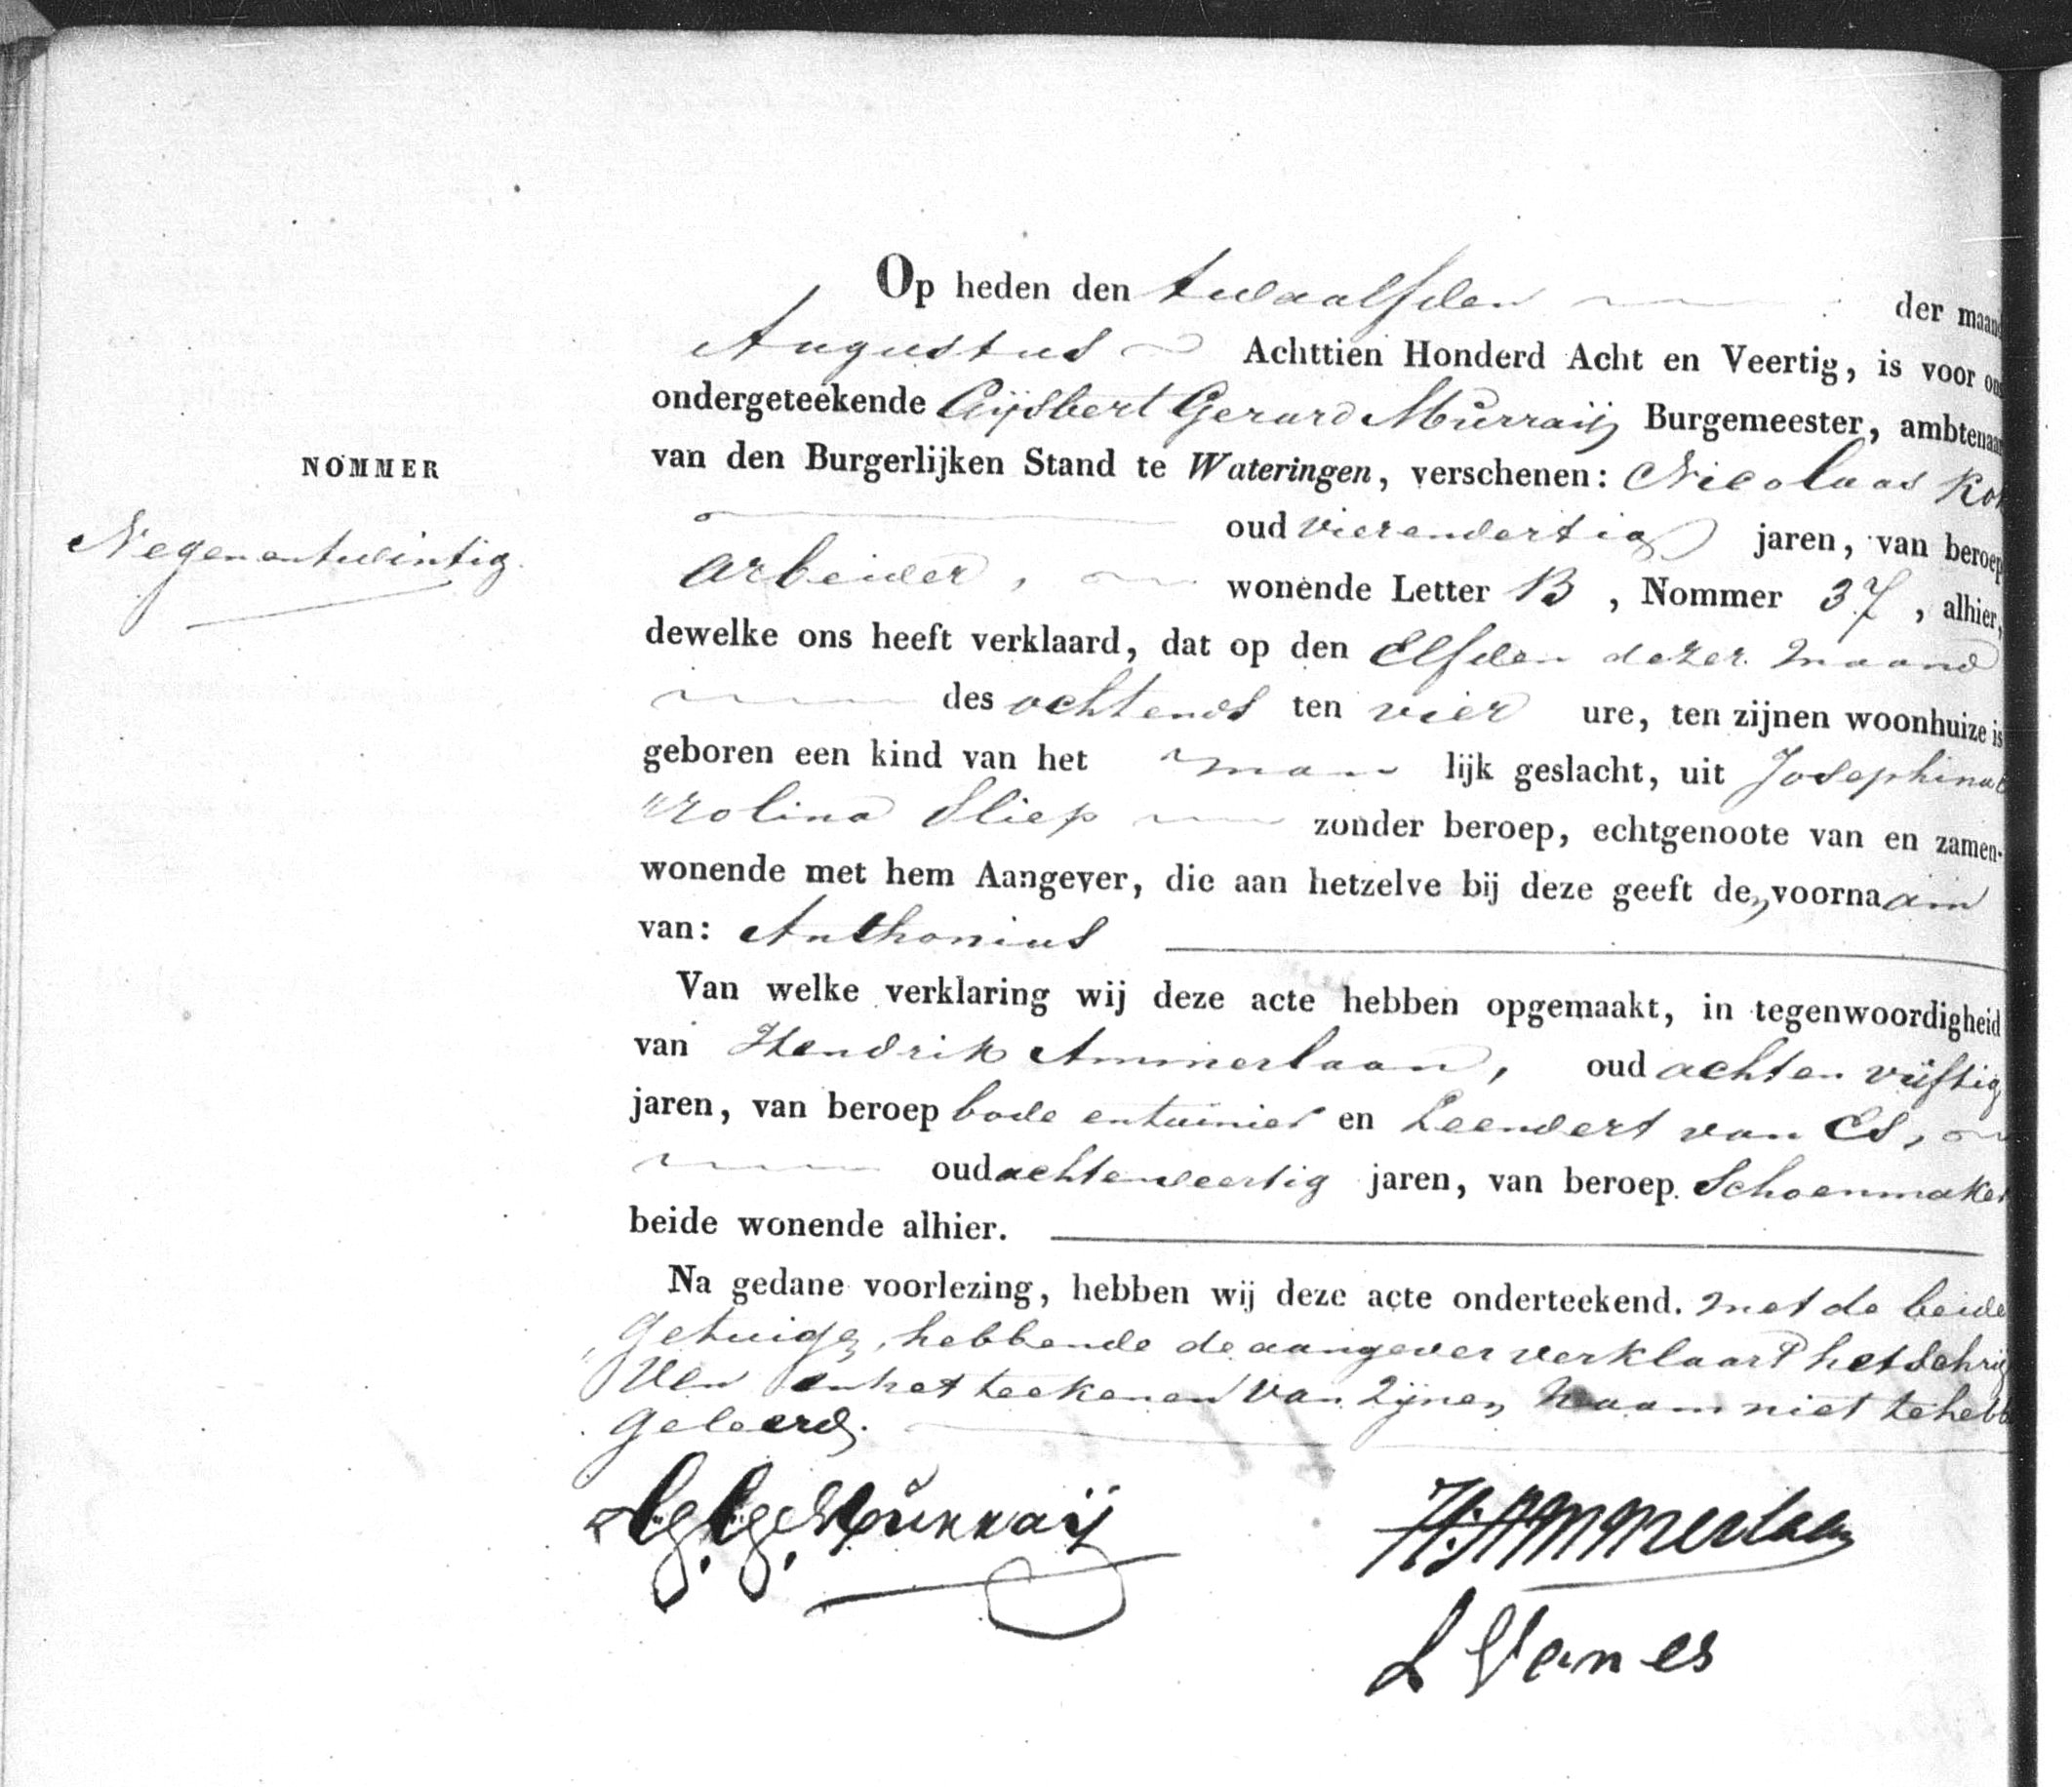 Op heden den twaalfden der maand
Augustus Achttien Honderd Acht en Veertig, is voor ons
ondergeteekende Gijsbert Gerard Murraij Burgemeester, ambtenaar
van den Burgerlijken Stand te Wateringen, verschenen: Nicolaas Kok
NOMMER
Negenentwintig.
oud vierendertig jaren, van beroep
arbeider, wonende Letter B, Nommer 37, alhier,
dewelke ons heeft verklaard, dat op den Elfden dezer maand
des ochtends ten vier ure, ten zijnen woonhuize is
geboren een kind van het man lijk geslacht, uit Josephina C
arolina Sliep zonder beroep, echtgenoote van en zamen-
wonende met hem Aangever, die aan hetzelve bij deze geeft den voornaam
van: Anthonius
Van welke verklaring wij deze acte hebben opgemaakt, in tegenwoordigheid
van Hendrik Ammerlaan, oud achten vijftig
jaren, van beroep bode en tuinier en Leendert van Es,
oud achtenveertig jaren, van beroep Schoenmaker
beide wonende alhier.
Na gedane voorlezing, hebben wij deze acte onderteekend. met de beide
getuigen, hebbende de aangever verklaard het schrij
ven en het teekenen van zijnen naam niet te hebb
geleerd.
G. G. Murraij
H. Ammerlaan
L Van es